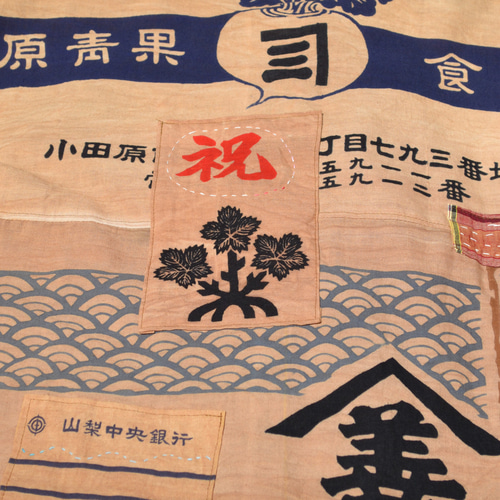 原青果
食
祝
小田原
丁目七九三番地
五九一一
五九一二番
山梨中央銀行
善